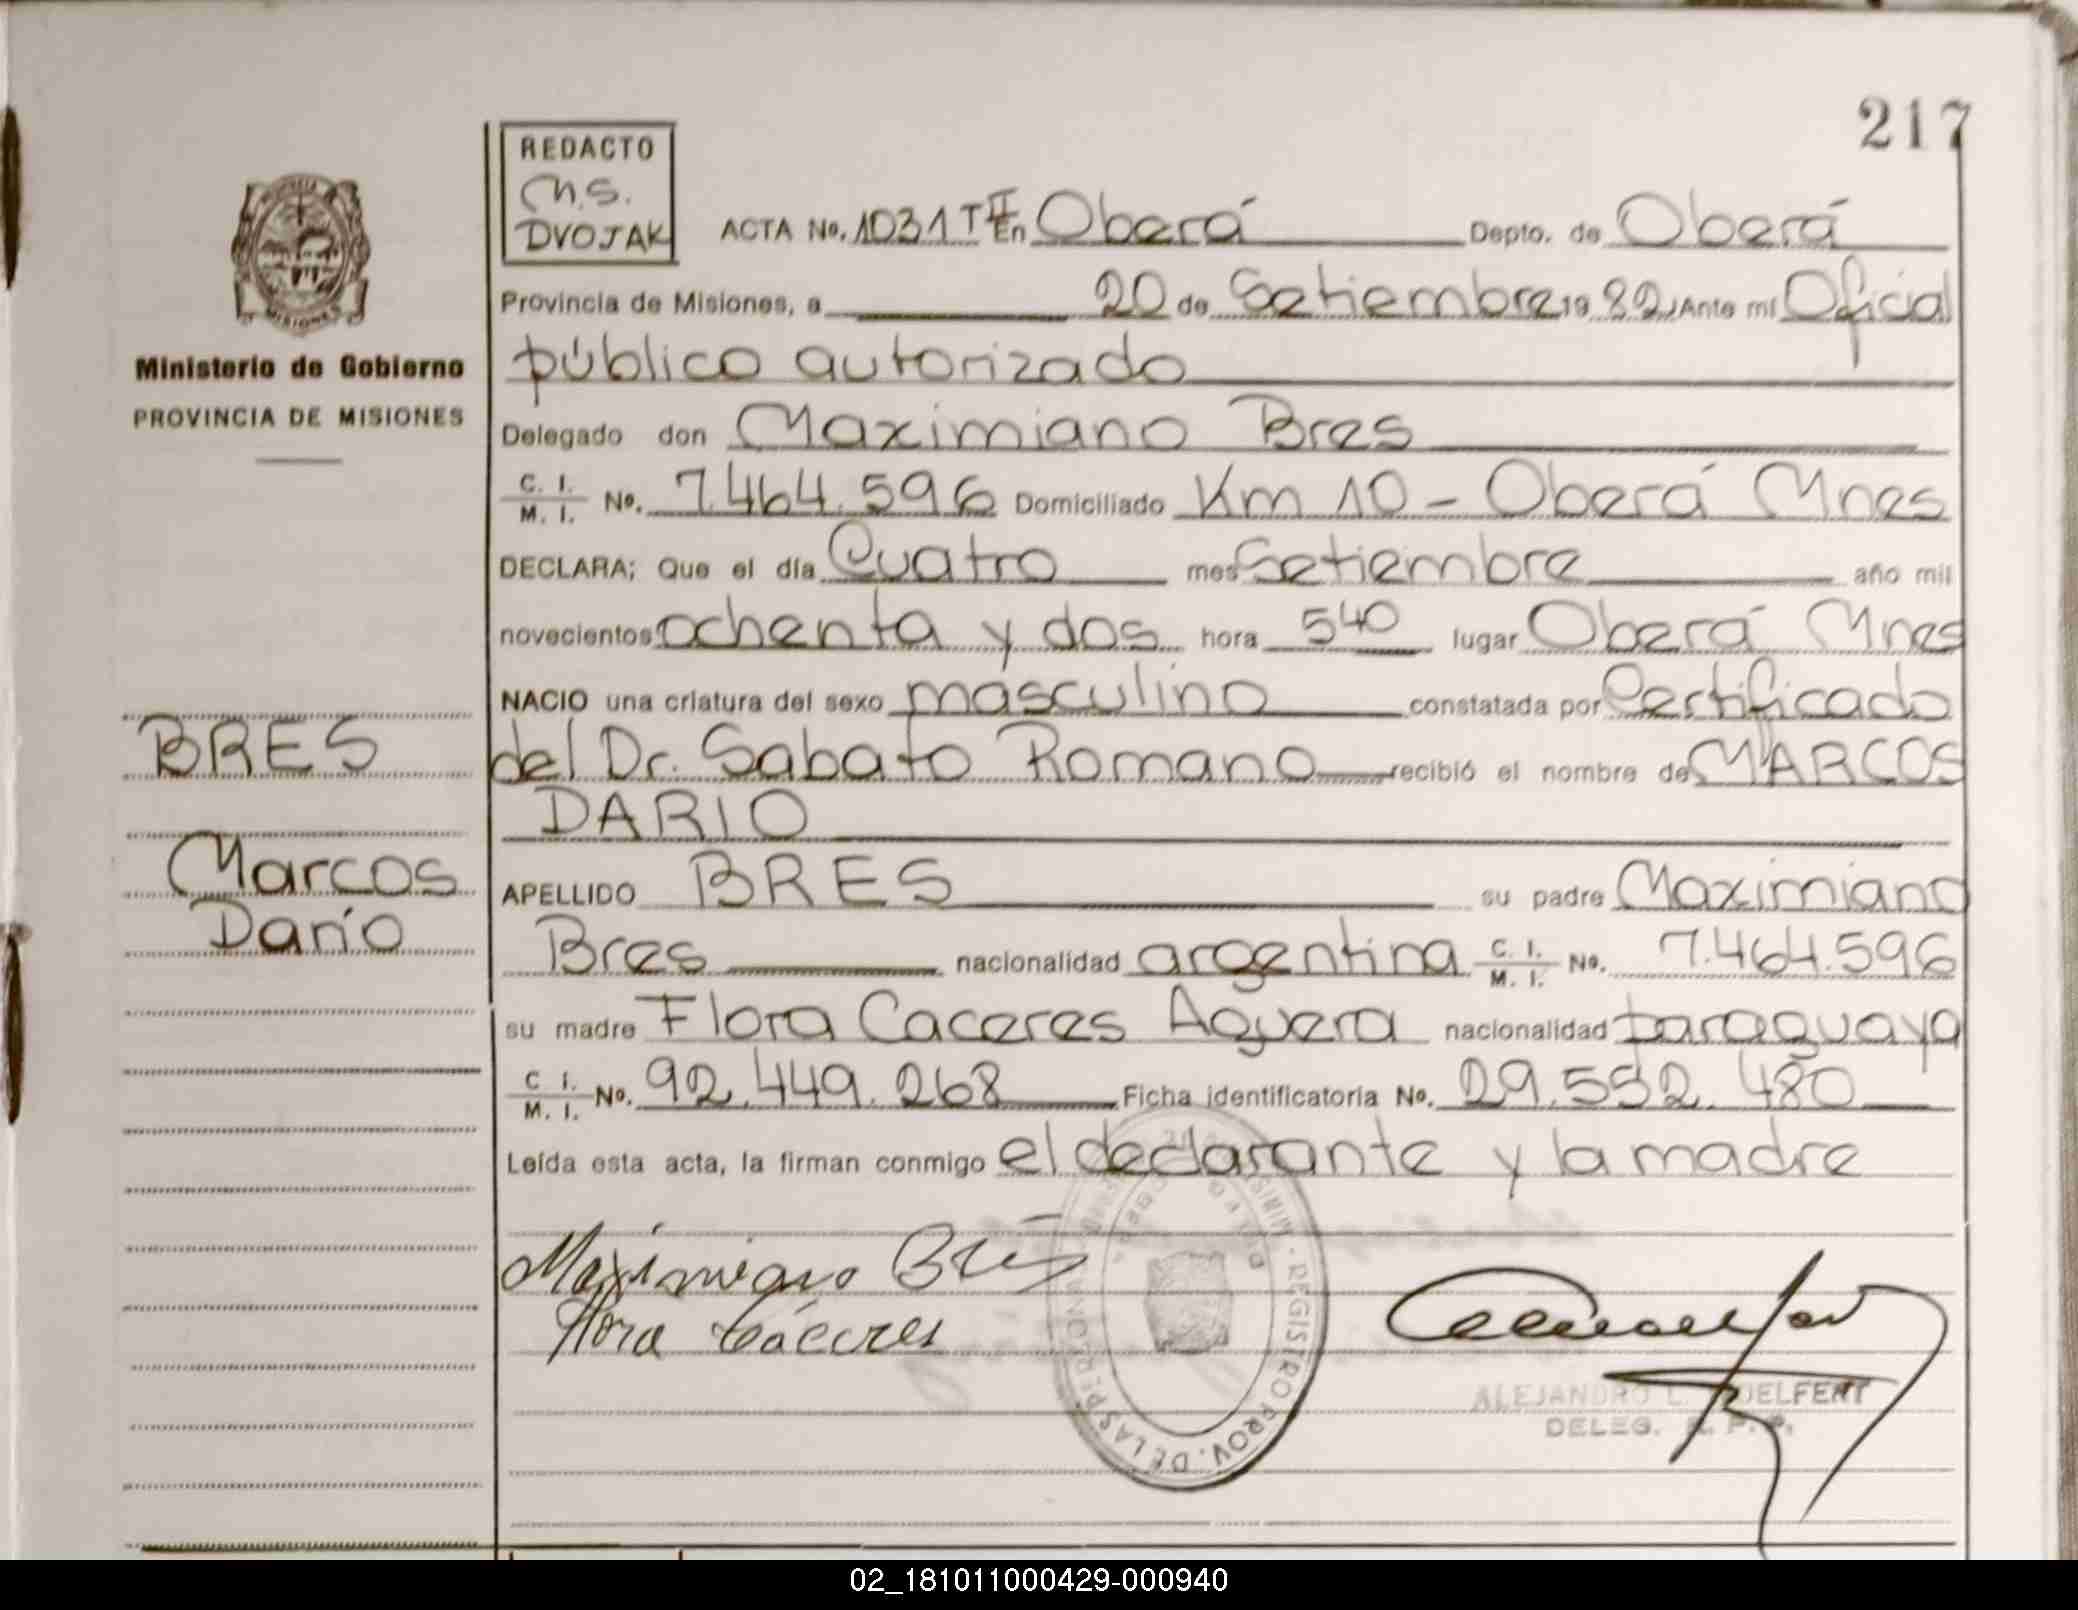 217
REDACTO
M.S.
DVOJAK
ACTA No. 1031 T II En Oberá Depto. de Oberá
Provincia de Misiones, a 20 de Setiembre 19 82, Ante mí Oficial
público autorizado
Delegado don Maximiano Bres
C. I. M. I. No. 7.464.596 Domiciliado Km 10 - Oberá Mnes
DECLARA; Que el día Cuatro mes Setiembre año mil
novecientos ochenta y dos hora 540 lugar Oberá Mnes
NACIO una criatura del sexo masculino constatada por Certificado
del Dr. Sabato Romano recibió el nombre de MARCOS
DARIO
APELLIDO BRES su padre Maximiano
Bres nacionalidad argentina C. I. M. I. No. 7.464.596
su madre Flora Caceres Aguera nacionalidad paraguaya
C. I. M. I. No. 92.449.268 Ficha identificatoria No. 29.592.480
Leída esta acta, la firman conmigo el declarante y la madre
Maximiano Bres
Flora Cáceres
REGISTRO PROV. DE LAS PERSONAS
ALEJANDRO L. DELFERT
DELEG. R. P. P.
MISIONES
Ministerio de Gobierno
PROVINCIA DE MISIONES
BRES
Marcos
Darío
02_181011000429-000940